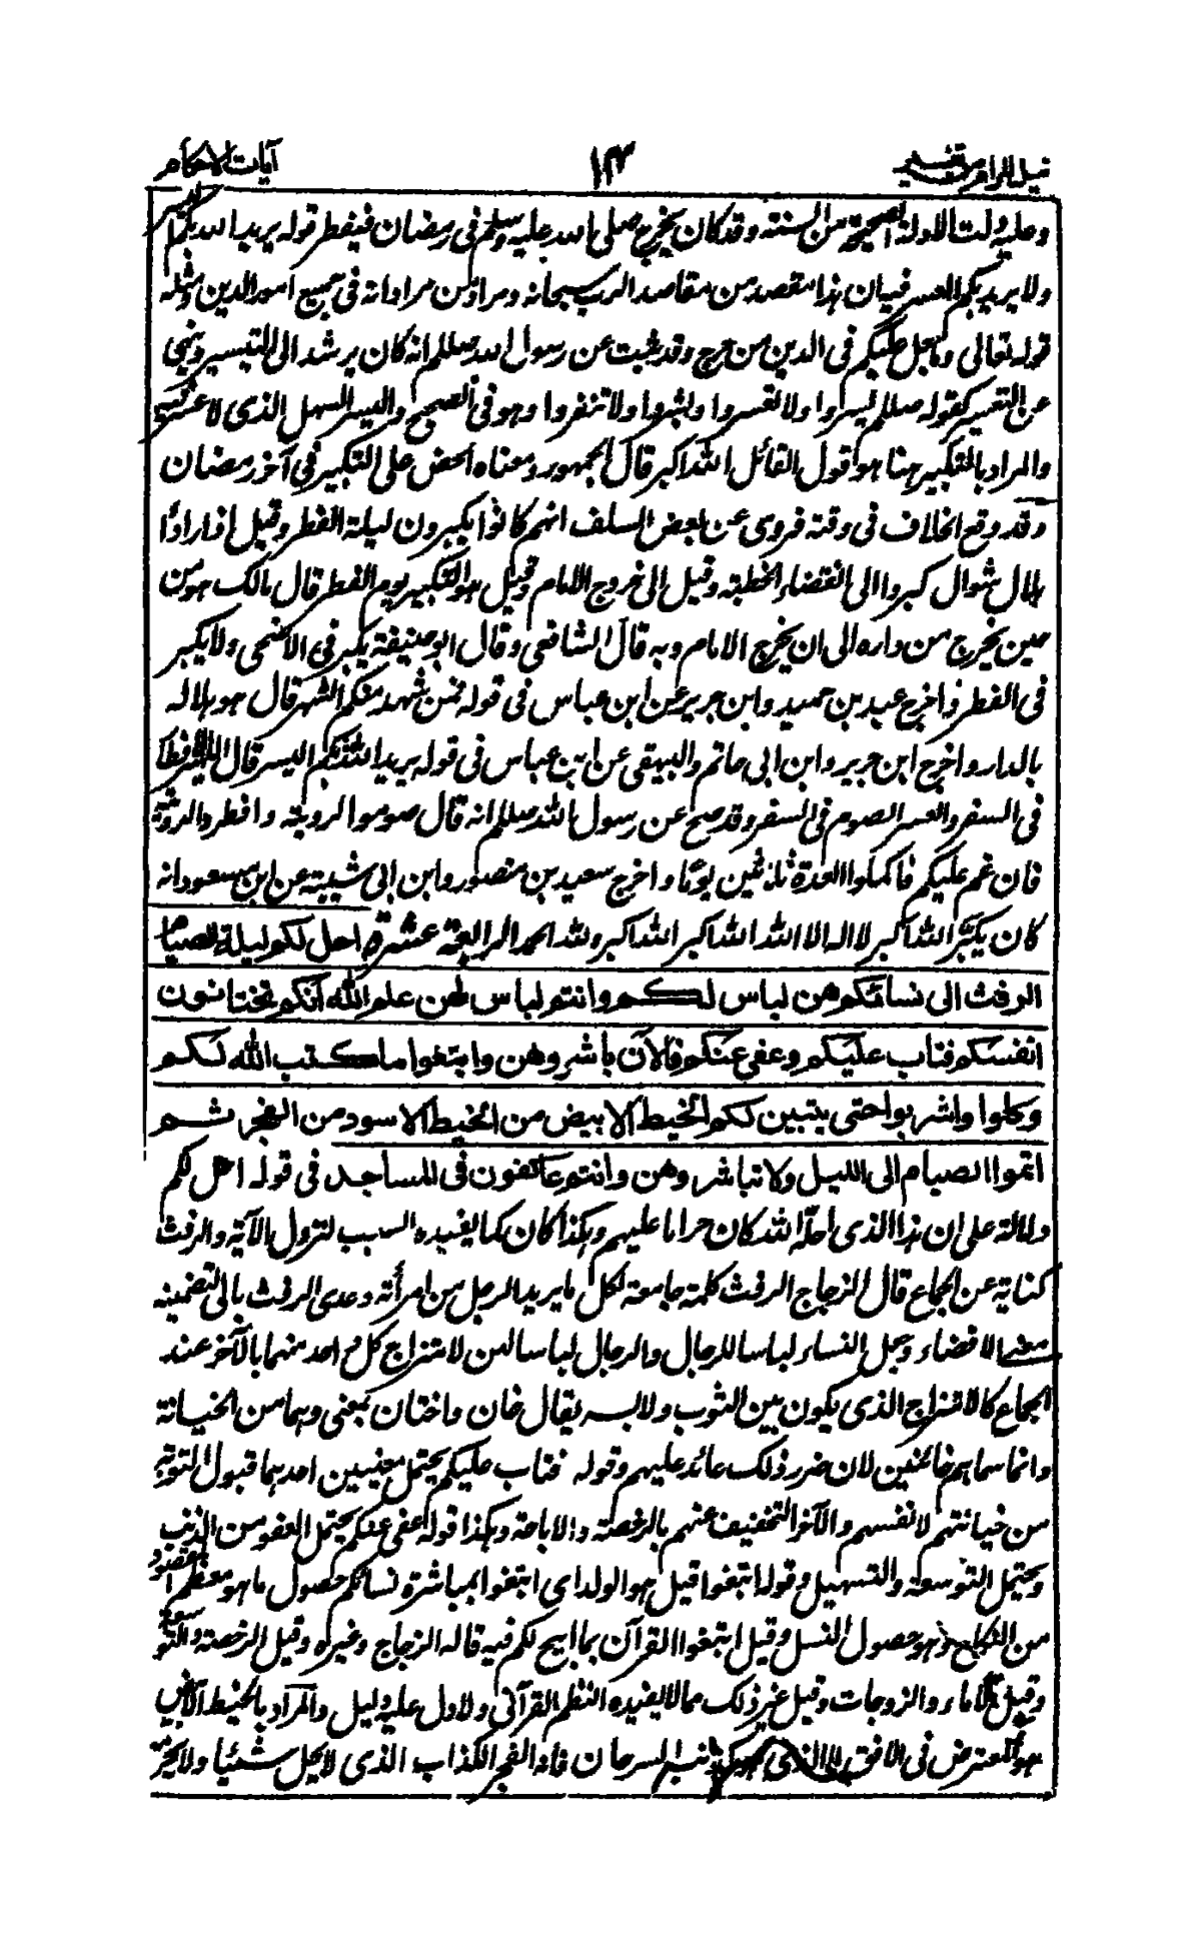 نيل المرام من تفسير ١٢٣ آيات الاحكام
وعليه دلت الادلة الصحيحة من السنة وقد كان يخرج صلى الله عليه وسلم فى رمضان فيفطر قوله يريد الله بكم اليسر
ولا يريد بكم العسر فيه ان هذا مقصد من مقاصد الرب سبحانه ومراد من مراداته فى جميع امور الدين ومثله
قوله تعالى وما جعل عليكم فى الدين من حرج وقد ثبت عن رسول الله صللم انه كان يرشد الى التيسير وينهى
عن التعسير كقوله صللم يسروا ولا تعسروا وبشروا ولا تنفروا وهو فى الصحيح واليسر السهل الذى لا عسر فيه
والمراد بالتكبير هنا هو قول القائل الله اكبر قال الجمهور ومعناه الحض على التكبير فى آخر رمضان
وقد وقع الخلاف فى وقته فروى عن بعض السلف انهم كانوا يكبرون ليلة الفطر وقيل اذا رادا
هلال شوال كبروا الى انقضاء الخطبة وقيل الى خروج الامام وقيل هو التكبير يوم الفطر قال مالك هو من
حين يخرج من داره الى ان يخرج الامام وبه قال الشافعى وقال ابو حنيفة يكبر فى الاضحى ولا يكبر
فى الفطر واخرج عبد بن حميد وابن جرير عن ابن عباس فى قوله فمن شهد منكم الشهر قال هو هلاله
بالدار واخرج ابن جرير وابن ابى حاتم والبيهقى عن ابن عباس فى قوله يريد الله بكم اليسر قال اليسر الافطار
فى السفر والعسر الصوم فى السفر وقد صح عن رسول الله صللم انه قال صوموا لرويته وافطروا لرويته
فان غم عليكم فاكملوا العدة ثلاثين يوما واخرج سعيد بن منصور وابن ابى شيبة عن ابن مسعود انه
كان يكبر الله اكبر لا اله الا الله الله اكبر الله اكبر ولله الحمد الرابعة عشرة احل لكم ليلة الصيام
الرفث الى نسائكم هن لباس لكم وانتم لباس لهن علم الله انكم كنتم تختانون
انفسكم فتاب عليكم وعفى عنكم فالآن باشروهن وابتغوا ما كتب الله لكم
وكلوا واشربوا حتى يتبين لكم الخيط الابيض من الخيط الاسود من الفجر ثم
اتموا الصيام الى الليل ولا تباشروهن وانتم عاكفون فى المساجد فى قوله احل لكم
دلالة على ان هذا الذى احله الله كان حراما عليهم وهكذا كان كما يفيده السبب لنزول الآية والرفث
كناية عن الجماع قال الزجاج الرفث كلمة جامعة لكل ما يريد الرجل من امرأته وعدى الرفث بالى لتضمينه
معنى الافضاء وجعل النساء لباسا للرجال والرجال لباسا لهن لامتزاج كل واحد منهما بالآخر عند
الجماع كالامتزاج الذى يكون بين الثوب ولابسه يقال خان واختان بمعنى وهما من الخيانة
وانما سماهم خائنين لان ضرر ذلك عائد عليهم وقوله فتاب عليكم يحتمل معنيين احدهما قبول التوبة
من خيانتهم لانفسهم والآخر التخفيف عنهم بالرخصة والاباحة وهكذا قوله عفى عنكم يحتمل العفو من الذنب
ويحتمل التوسعة والتسهيل وقوله ابتغوا قيل هو الولد اى ابتغوا بمباشرة نسائكم حصول ما هو معظم المقصود
من النكاح وهو حصول النسل وقيل ابتغوا القرآن بما ابيح لكم فيه قاله الزجاج وغيره وقيل الرخصة والتوسعة
وقيل الاماء والزوجات وقيل غير ذلك مما لا يفيده النظم القرآنى ولا دل عليه دليل والمراد بالخيط الابيض
هو المعترض فى الافق لا الذى هو كذنب السرحان فانه الفجر الكذاب الذى لا يحل شيئا ولا يحرمه